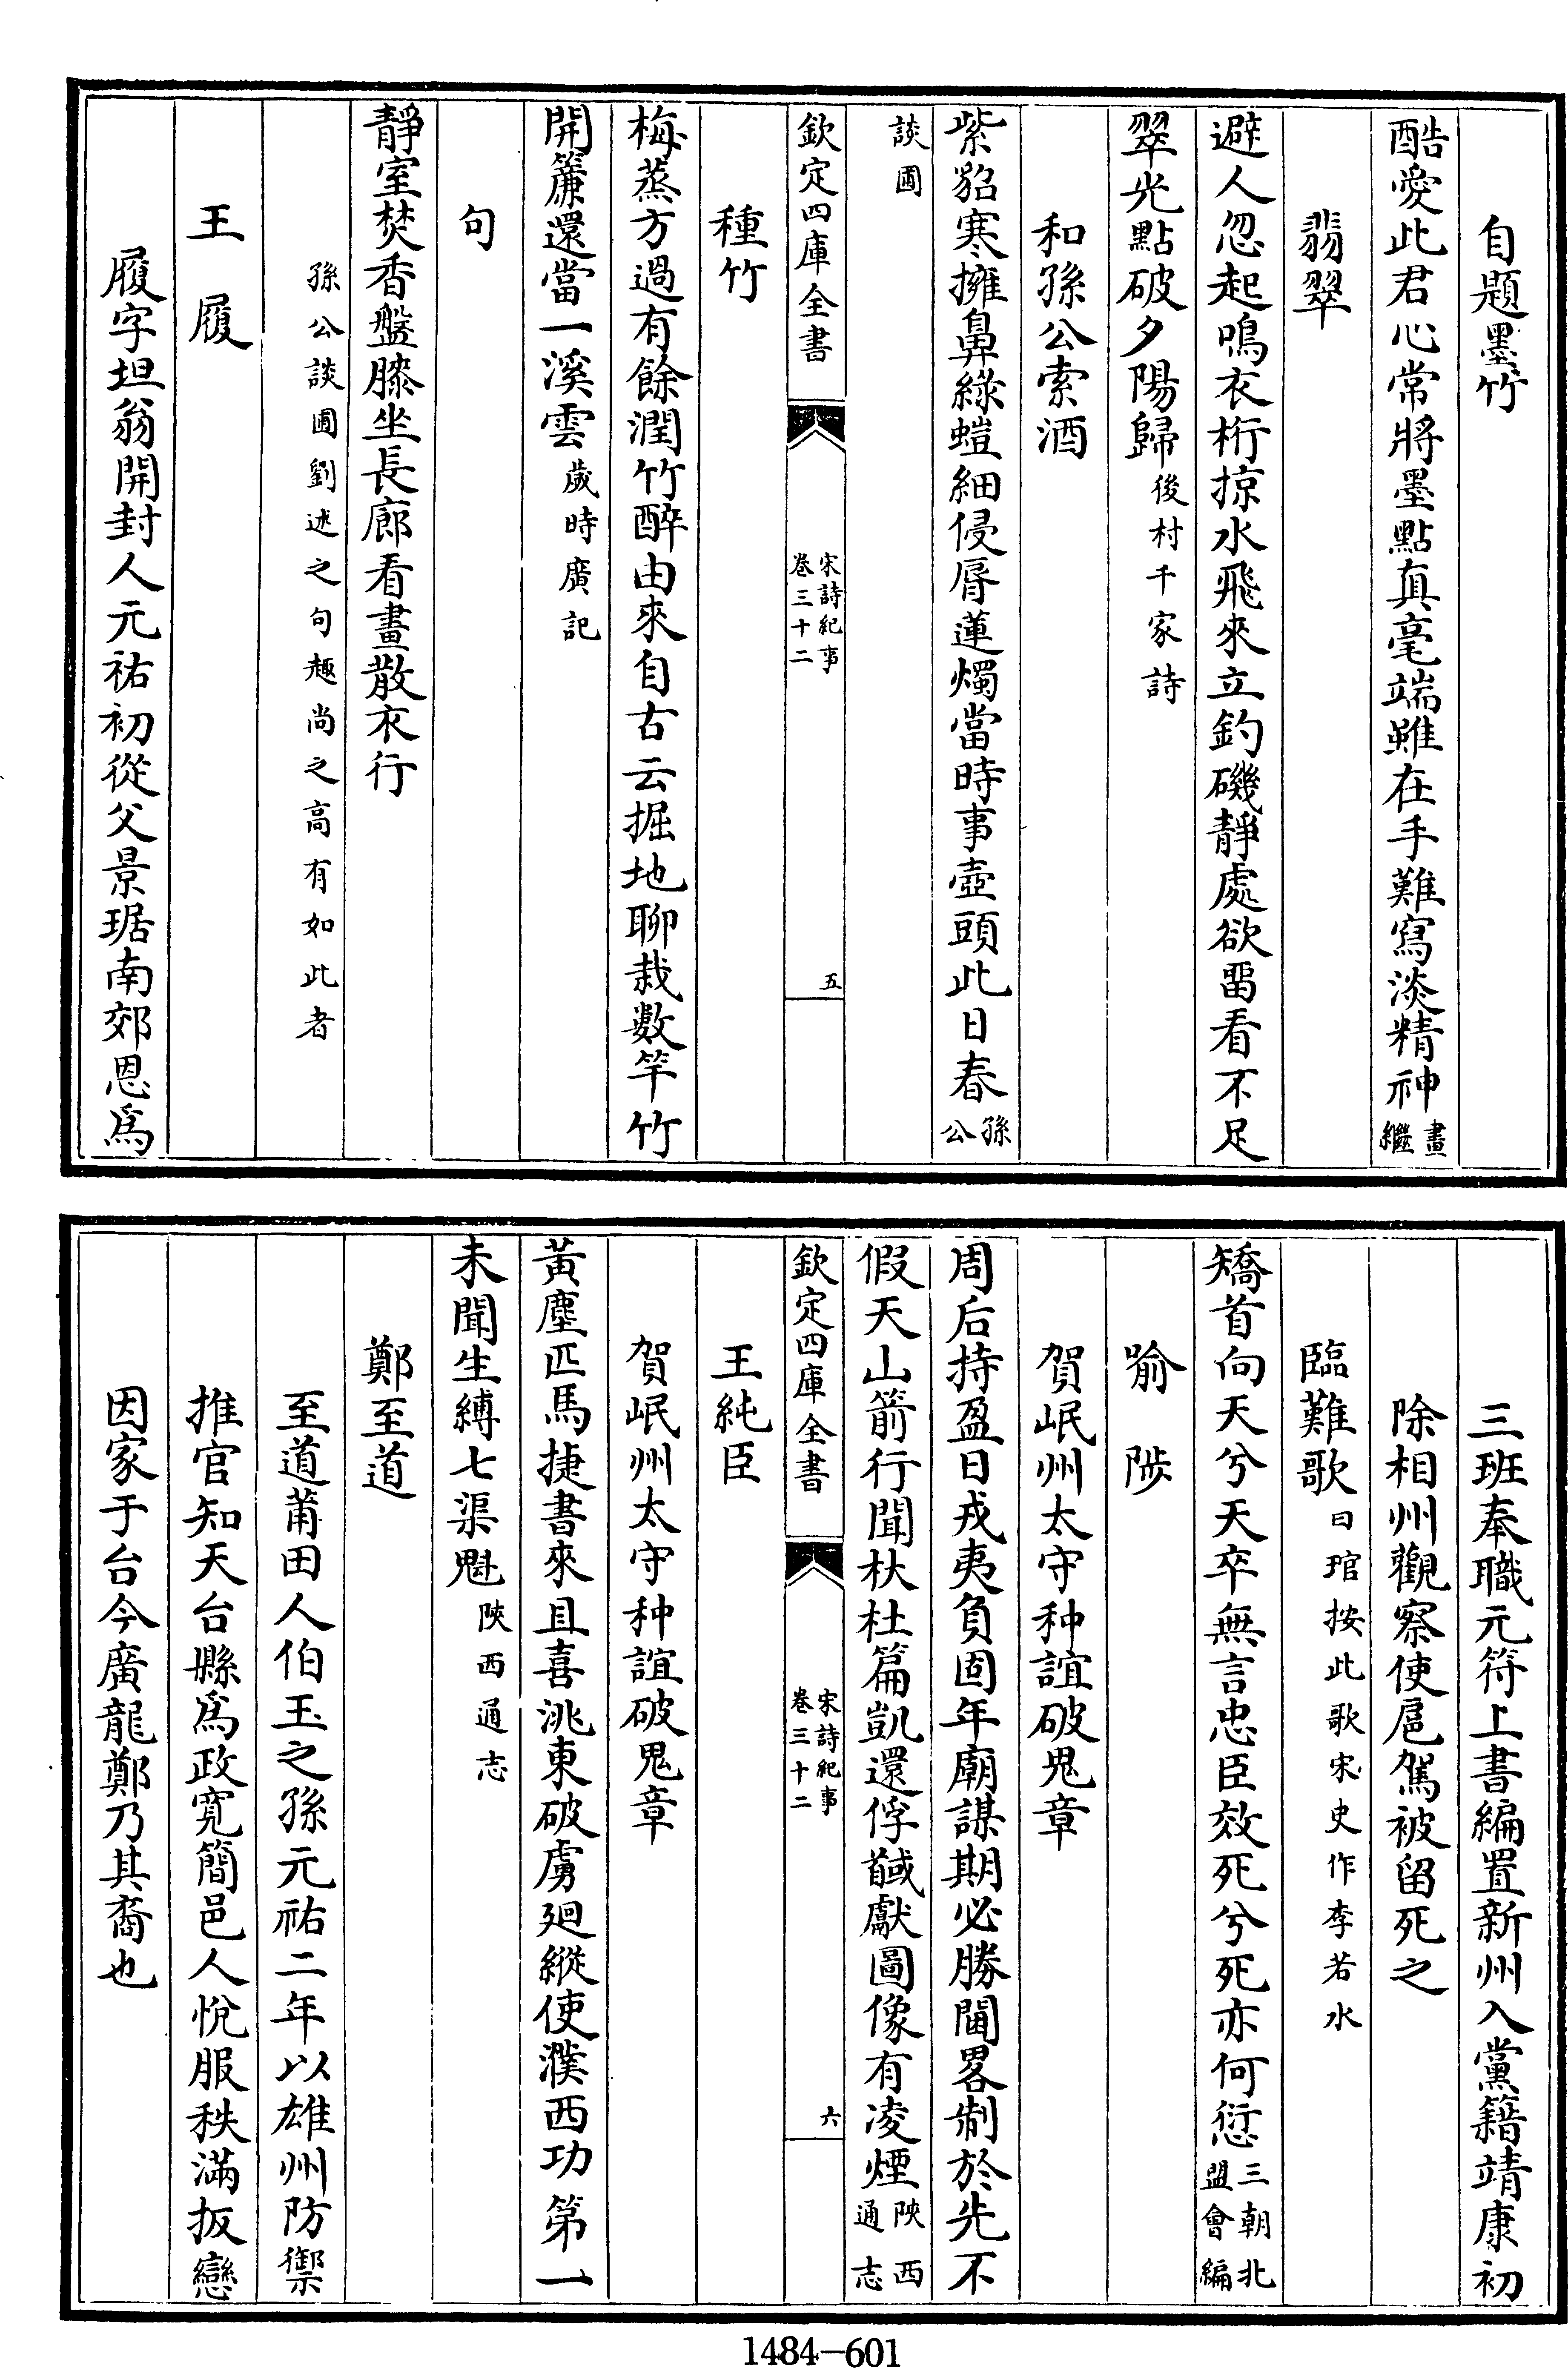 自題墨竹
酷愛此君心常將墨點真毫端雖在手難寫淡精神畫繼
翡翠
避人忽起鳴衣桁掠水飛來立釣磯靜處欲畱看不足
翠光點破夕陽歸後村千家詩
和孫公索酒
紫貂寒擁鼻綠螘細侵脣蓮燭當時事壺頭此日春孫公
談圃
欽定四庫全書
宋詩紀事
卷三十二
五
種竹
梅蒸方過有餘潤竹醉由來自古云掘地聊栽數竿竹
開簾還當一溪雲歲時廣記
句
靜室焚香盤膝坐長廊看畫散衣行
孫公談圃劉述之句趣尚之高有如此者
王履
履字坦翁開封人元祐初從父景琚南郊恩爲
三班奉職元符上書編置新州入黨籍靖康初
除相州觀察使扈駕被留死之
臨難歌曰琯按此歌宋史作李若水
矯首向天兮天卒無言忠臣效死兮死亦何愆三朝北盟會編
喻陟
賀岷州太守种誼破鬼章
周后持盈日戎夷負固年廟謀期必勝閫畧制於先不
假天山箭行聞杕杜篇凱還俘馘獻圖像有凌煙陝西通志
欽定四庫全書
宋詩紀事
卷三十二
六
王純臣
賀岷州太守种誼破鬼章
黃塵匹馬捷書來且喜洮東破虜廻縱使濮西功第一
未聞生縛七渠魁陝西通志
鄭至道
至道莆田人伯玉之孫元祐二年以雄州防禦
推官知天台縣爲政寬簡邑人悅服秩滿扳戀
因家于台今廣龍鄭乃其裔也
1484-601